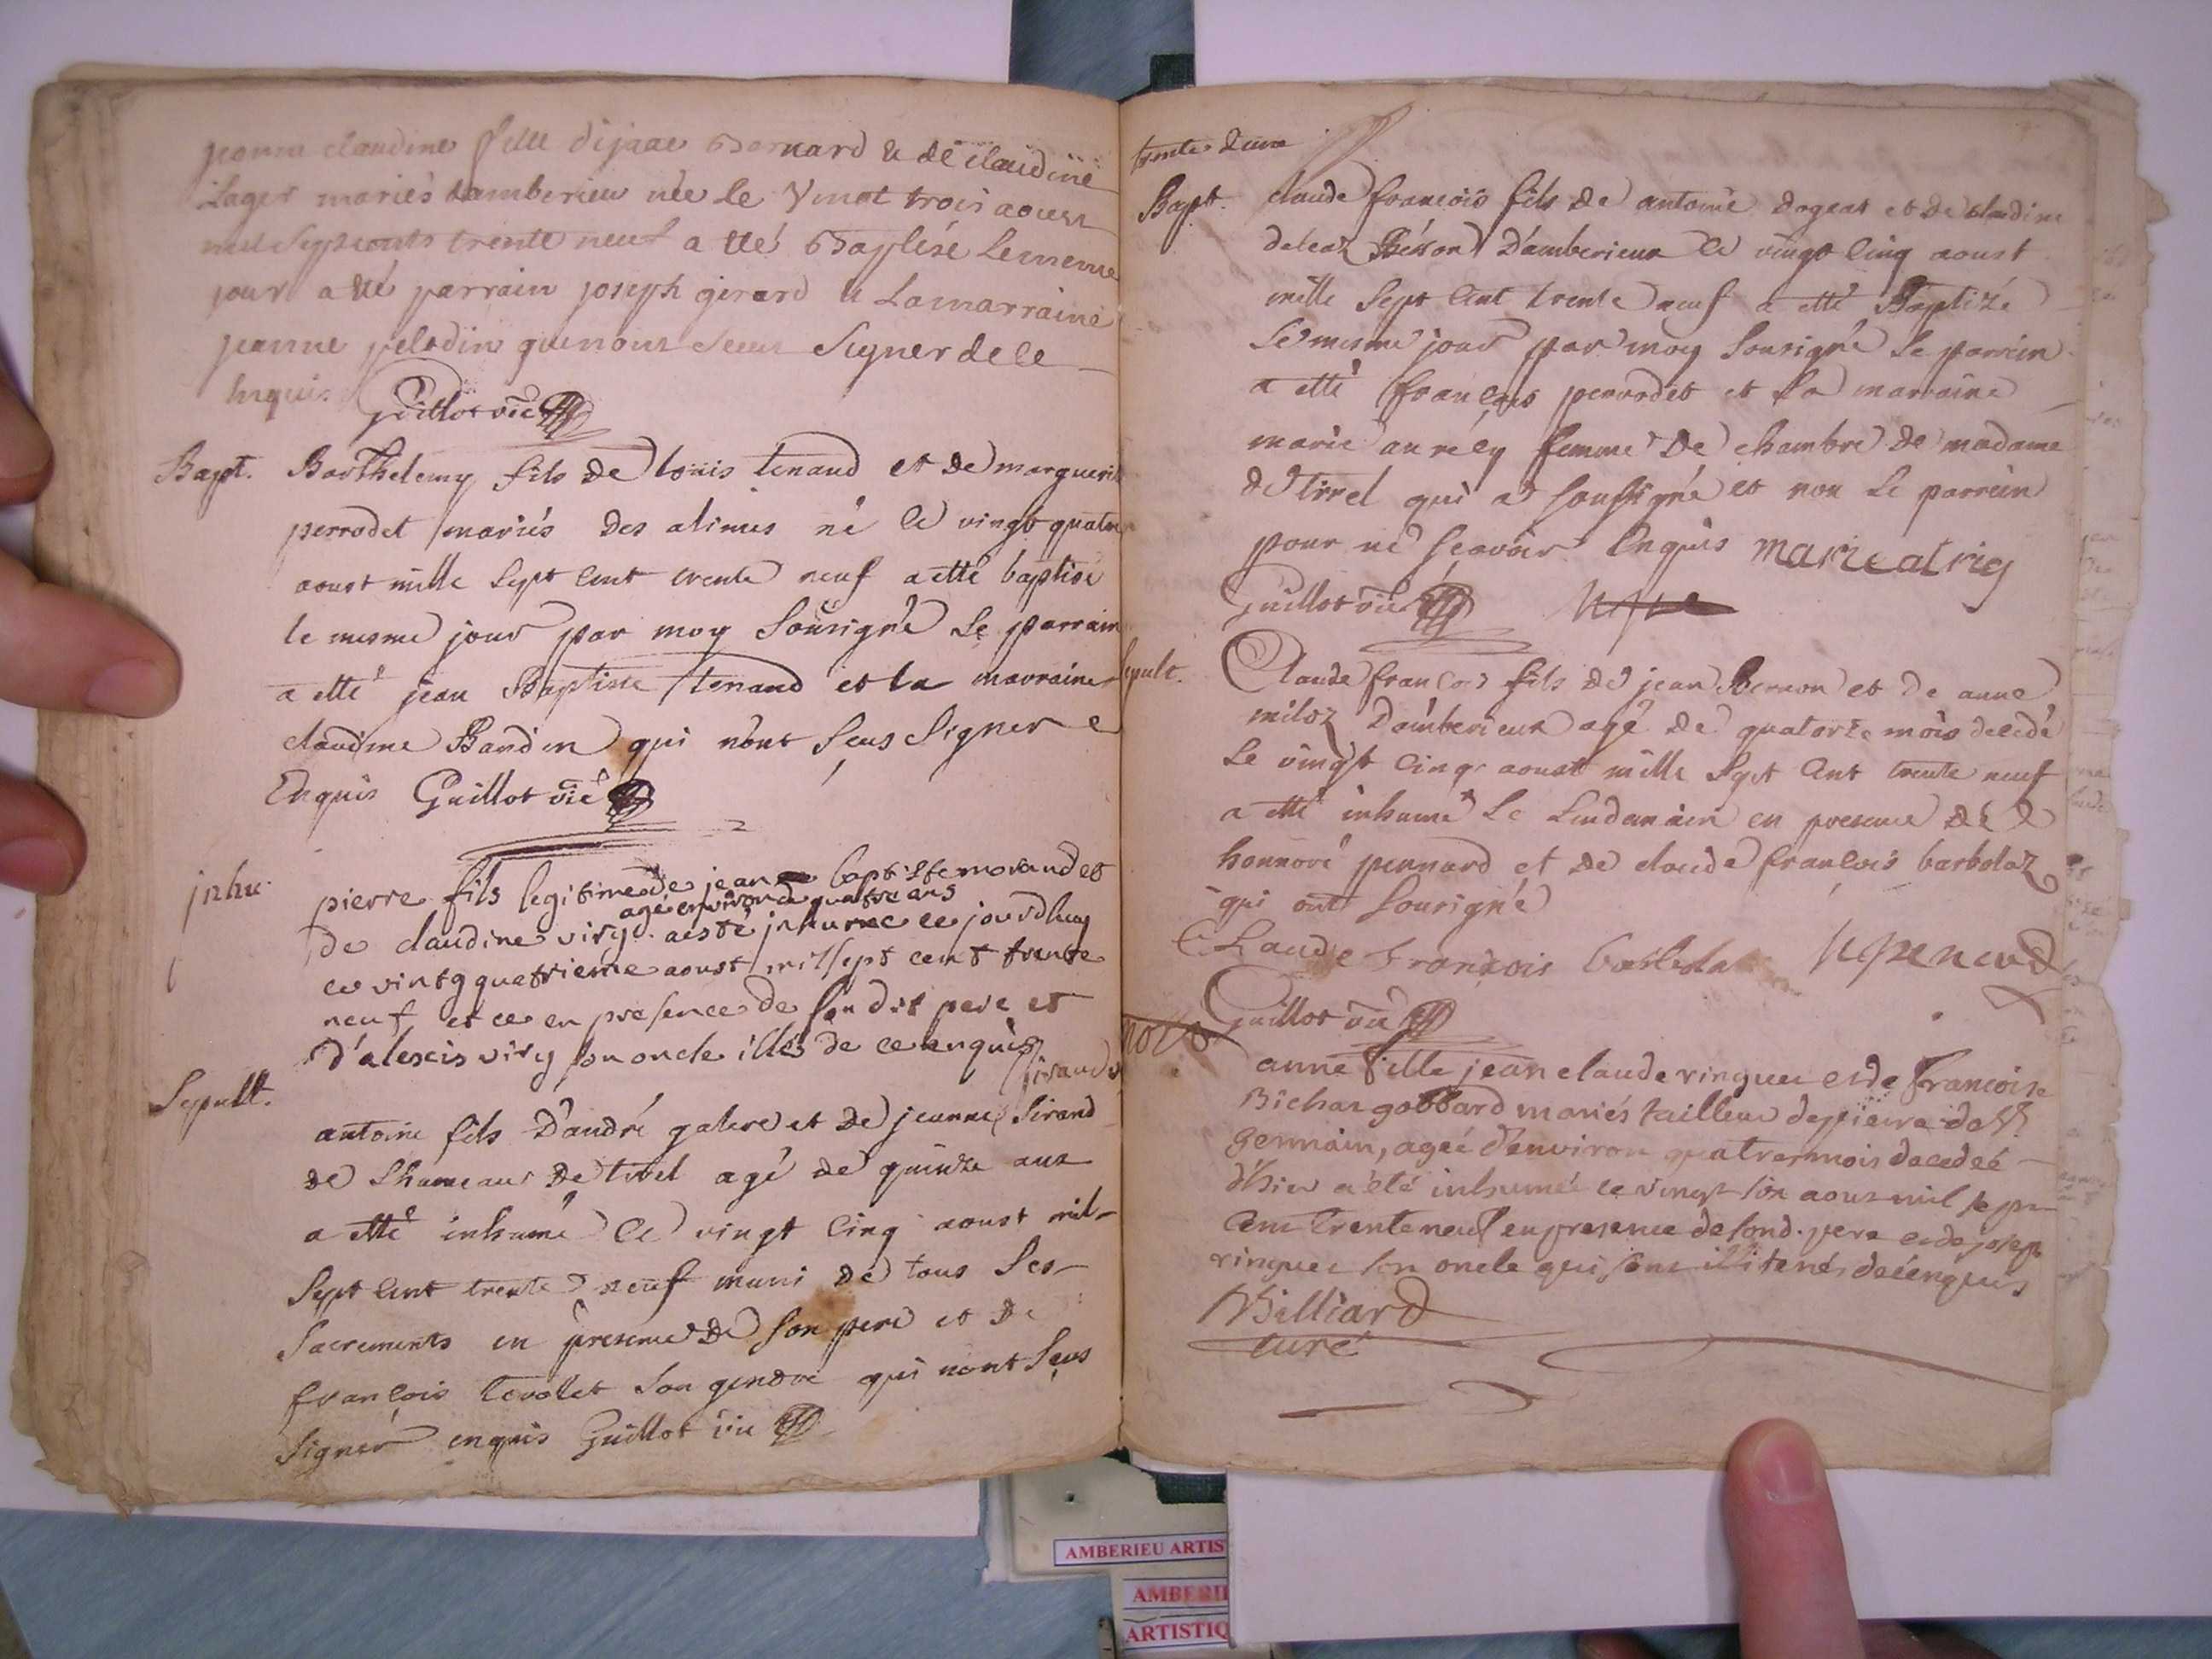 jeanne claudine fille d'isaac Bernard & de claudine
Lager mariés damberieu née le Vingt trois aoust
mil sept cents trente neuf a été Baptisée le meme
jour a été parrain joseph girard & la marraine
jeanne peladin qui nont sceus signer de ce
enquis Guillot vic
Bapt. Barthelemy fils de louis tenand et de marguerite
perrodet mariés des alimes né le vingt quatre
aoust mille sept cent trente neuf a etté baptisé
le mesme jour par moy sousigné le parrain
a etté jean Baptiste tenand et la marraine
claudine Bandin qui n'ont sceus signer
Enquis Guillot vic
jnhu. pierre fils legitime de jean baptiste morand et
agé environ de quatre ans
de claudine viry a esté jnhumé ce jourdhuy
ce vintg quatrieme aoust mil sept cent trente
neuf et ce en presence de son dit pere et
d'alexis viry son oncle illés de ce enquis
Sirand
Sepult. antoine fils D'andré galere et de jeanne Sirand
de L'hameau de tirel agé de quinze ans
a etté inhumé le vingt cinq aoust mil
sept cent trente neuf muni de tous ses
sacrements en presence de son pere et de
françois tovolet son gendre qui nont sceus
signer enquis Guillot vic
trente deux
Bapt. claude françois fils de antoine dogeat et de claudine
deleaz Besson D'amberieux le vingt cinq aoust
mille sept cent trente neuf a etté Baptizé
le mesme jour par moy sousigné le parrein
a etté françois perrodet et la marraine
marie aurély femme de chambre de madame
de tirrel qui a soussigné et non le parrein
pour ne sçavoir enquis marie alriy
Guillot vic
Sepult. Claude françois fils de jean Bernon et de anne
miloz D'amberieux agé de quatorze mois decedé
le vingt cinq aoust mille sept cent trente neuf
a etté inhumé le lendemain en presence de
honnoré pennard et de claude françois barbolaz
qui ont sousigné
Claude François
Guillot vic
anne fille jean claude ringuet et de Francoise
Bichat gobbard mariés tailleur de pierre de St
germain, ageé d'environ quatre mois decedeé
d'hier a été inhumée ce vingt six aoust mil sept
cent trente neuf en presence de sond. pere et de joseph
ringuet son oncle qui sont illiterés de ce enquis
Billiard
curé
AMBERIEU ARTIS
AMBERI
ARTISTIQ